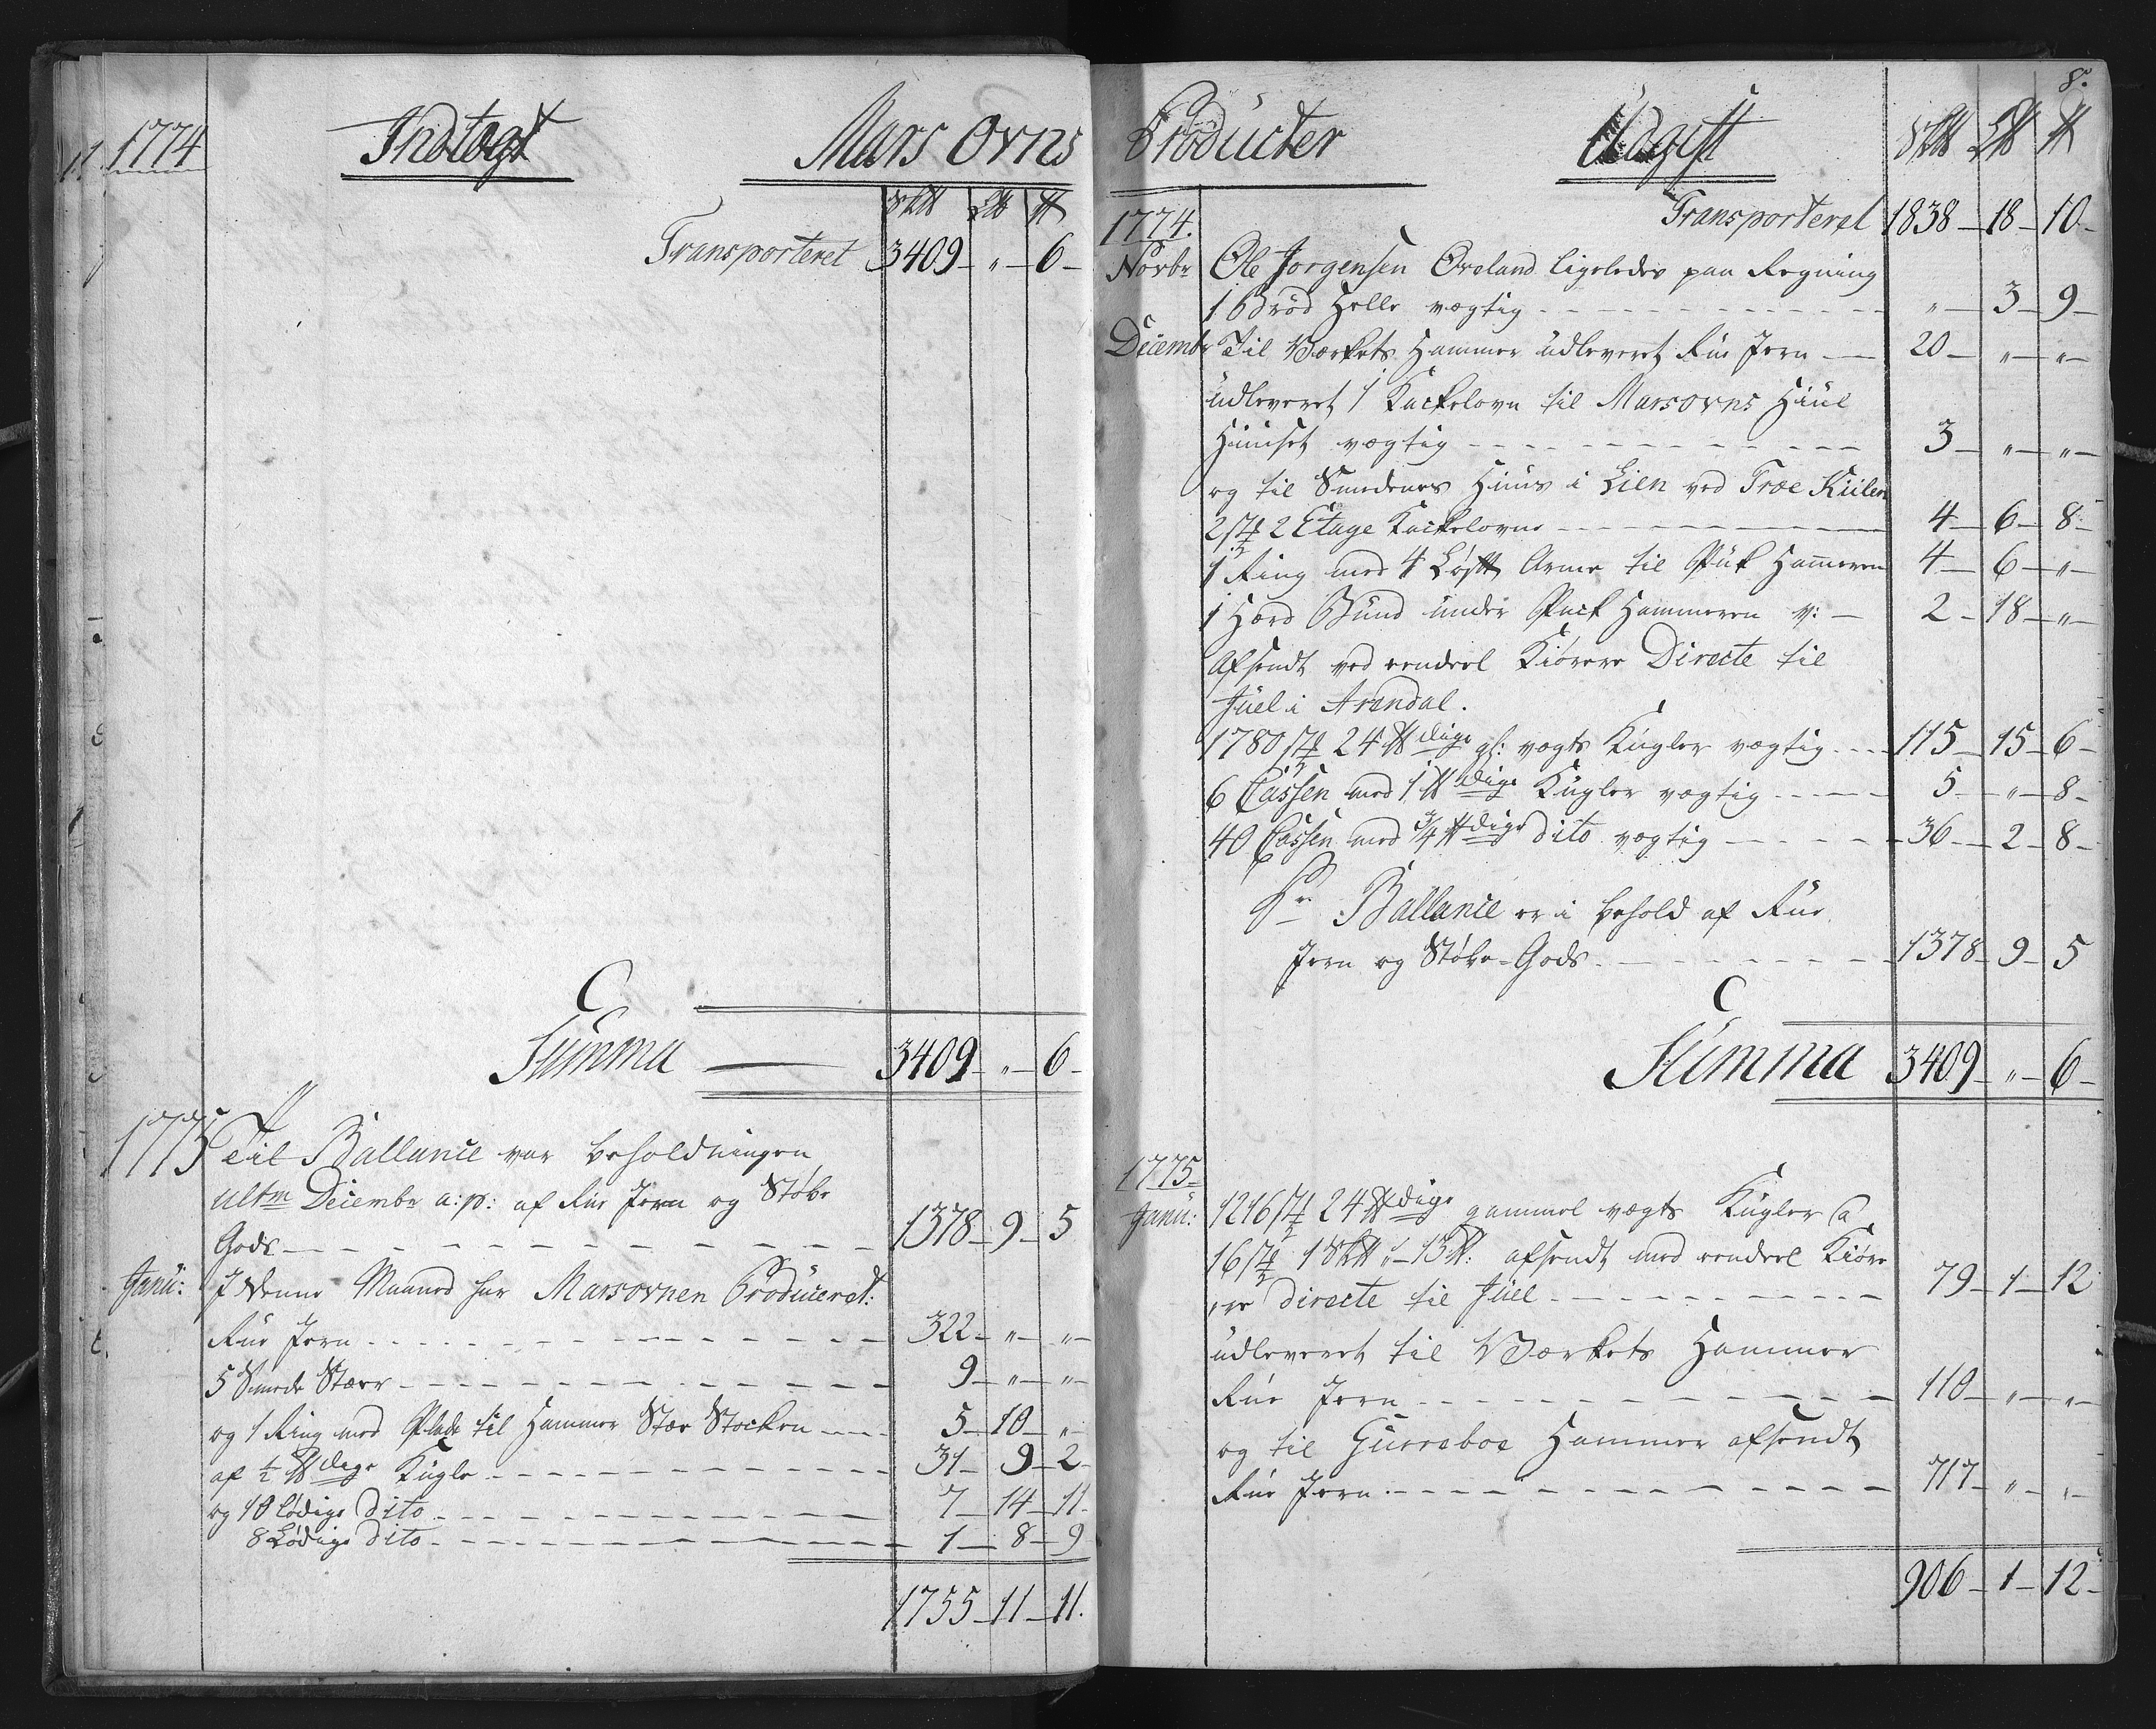 1774 Indtægt Mars Ovns
Sk℔ L℔ ℔
Transporteret 3409 – „ – 6 –
Summa 3409 – „ – 6 –
1775 Til Ballance var beholdningen
ultm Decembr a: p: af Rue Jern og Støbe
Gods 1378 – 9 – 5
Janu: I denne Maaned har Marsovnen Produceret:
Rue Jern 322 – „ – „ –
5 Smede Stær 9 – „ – „ –
og 1 Ring med Plade til Hammer Stær Stocken 5 – 10 – „ –
af ½ ℔dige Kugle 31 – 9 – 2 –
og 10 lödige dito 7 – 14 – 11 –
8 Lödige dito 1 – 8 – 9
1755 – 11 – 11.
8.
Producter Udgift Sk℔ L℔ ℔
1774. Transporteret 1838 – 18 – 10 –
Novbr Ole Jorgensen Oveland ligeledes paa Regning
1 Bröd Helle vægtig „ – 3 – 9 –
Decembr Til Værkets Hammer udleveret Rue Jern 20 – „ – „ –
udleveret 1 Kackelovn til Marsovns Hiul
Huuset vægtig 3 – „ – „ –
og til Smedenes Huus i Lien ved Træ Kiilen
2 st 2 Etage Kackelovne 4 – 6 – 8 –
1 Ring med 4 Løft Arme til Puk Hammeren 4 – 6 – „ –
1 Hærd Bund under Puck Hammeren v: 2 – 18 – „ –
Afsendt ved eendeel Kiörere Directe til
Juel i Arendal.
1780 st 24 ℔dige gl: vægts Kugler vægtig 115 – 15 – 6 –
6 Cassen med 1 ℔dige Kugler vægtig 5 – „ – 8 –
40 Cassen med ¾ ℔dige dito vægtig 36 – 2 – 8 –
Pr Ballance er i behold af Rue
Jern og Støbe-Gods 1378 – 9 – 5
Summa 3409 – „ – 6 –
1775 –
Janu: 1216 st 24 ℔dige gammel vægts Kugler a
16 st 1 Sk℔ „ – 13 ℔: afsendt med eendeel Kiöre
ere directe til Juel 79 – 1 – 12
udleveret til Værkets Hammer
Rue Jern 110 – „ – „ –
og til Gurreboe Hammer afsendt
Rue Jern 717 – „ – „ –
906 – 1 – 12 –